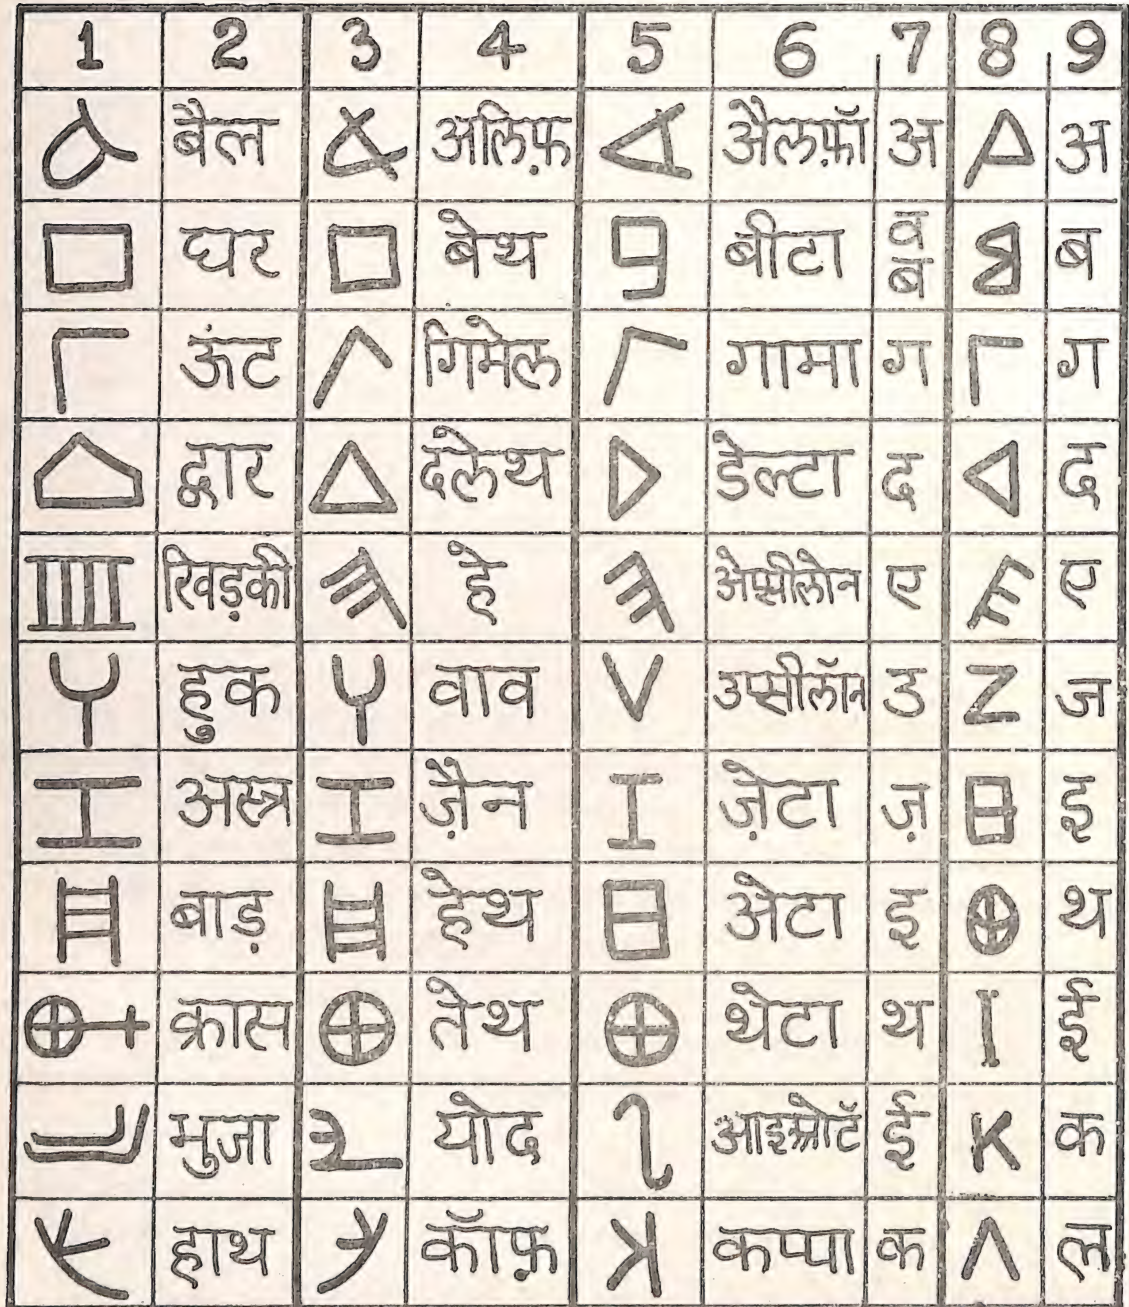 1 2 3 4 5 6 7 8 9
बैल अलिफ़ अैलफ़ॉ अ अ
घर बेथ बीटा व ब ब
ऊंट गिमेल गामा ग ग
द्वार दलेथ डेल्टा द द
खिड़की हे अेप्सीलोन ए ए
हुक वाव उप्सीलॉन उ ज
अस्त्र ज़ैन ज़ेटा ज़ इ
बाड़ हेथ अेटा इ थ
क्रास तेथ थेटा थ ई
भुजा योद ई क
हाथ कॉफ़ कप्पा क ल